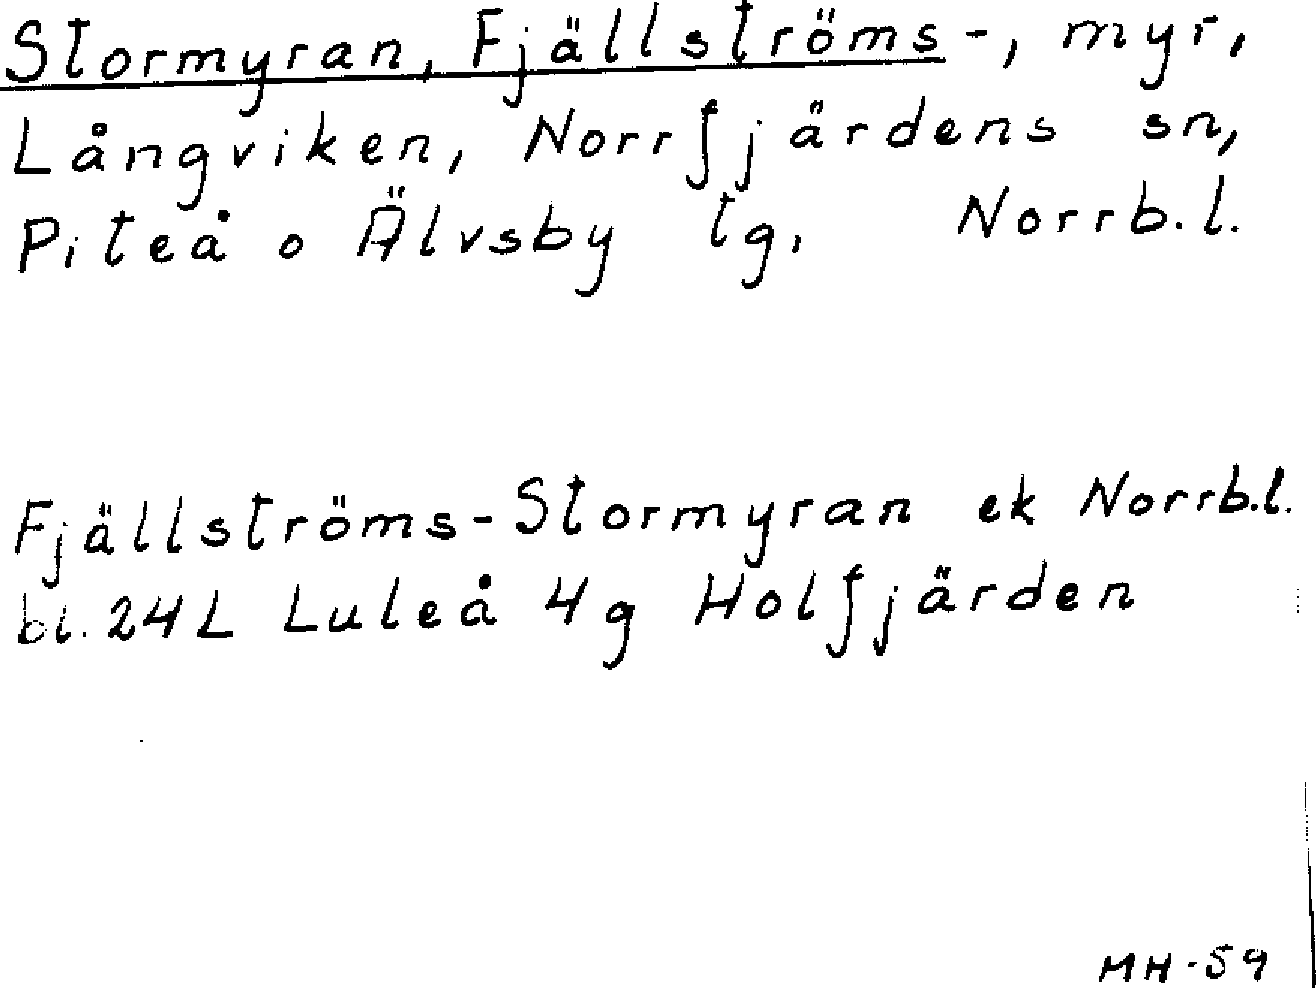 Stormyran, Fjällströms-, myr,
Långviken, Norrfjärdens sn,
Piteå o Älvsby tg, Norrb.l.
Fjällströms-Stormyran ek Norrb.l.
bl. 24L Luleå 4g Holfjärden
MH-59